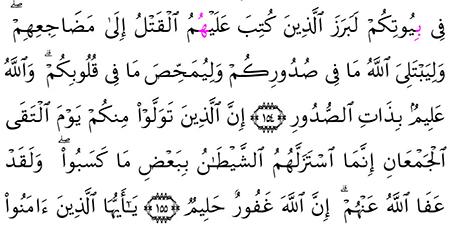 فِى بِيُوتِكُمْ لَبَرَزَ ٱلَّذِينَ كُتِبَ عَلَيْهُمُ ٱلْقَتْلُ إِلَىٰ مَضَاجِعِهِمْ ۖ
وَلِيَبْتَلِىَ ٱللَّهُ مَا فِى صُدُورِكُمْ وَلِيُمَحِّصَ مَا فِى قُلُوبِكُمْ ۗ وَٱللَّهُ
عَلِيمٌۢ بِذَاتِ ٱلصُّدُورِ ﴿١٥٤﴾ إِنَّ ٱلَّذِينَ تَوَلَّوْا۟ مِنكُمْ يَوْمَ ٱلْتَقَى
ٱلْجَمْعَانِ إِنَّمَا ٱسْتَزَلَّهُمُ ٱلشَّيْطَـٰنُ بِبَعْضِ مَا كَسَبُوا۟ ۖ وَلَقَدْ
عَفَا ٱللَّهُ عَنْهُمْ ۗ إِنَّ ٱللَّهَ غَفُورٌ حَلِيمٌ ﴿١٥٥﴾ يَـٰٓأَيُّهَا ٱلَّذِينَ ءَامَنُوا۟